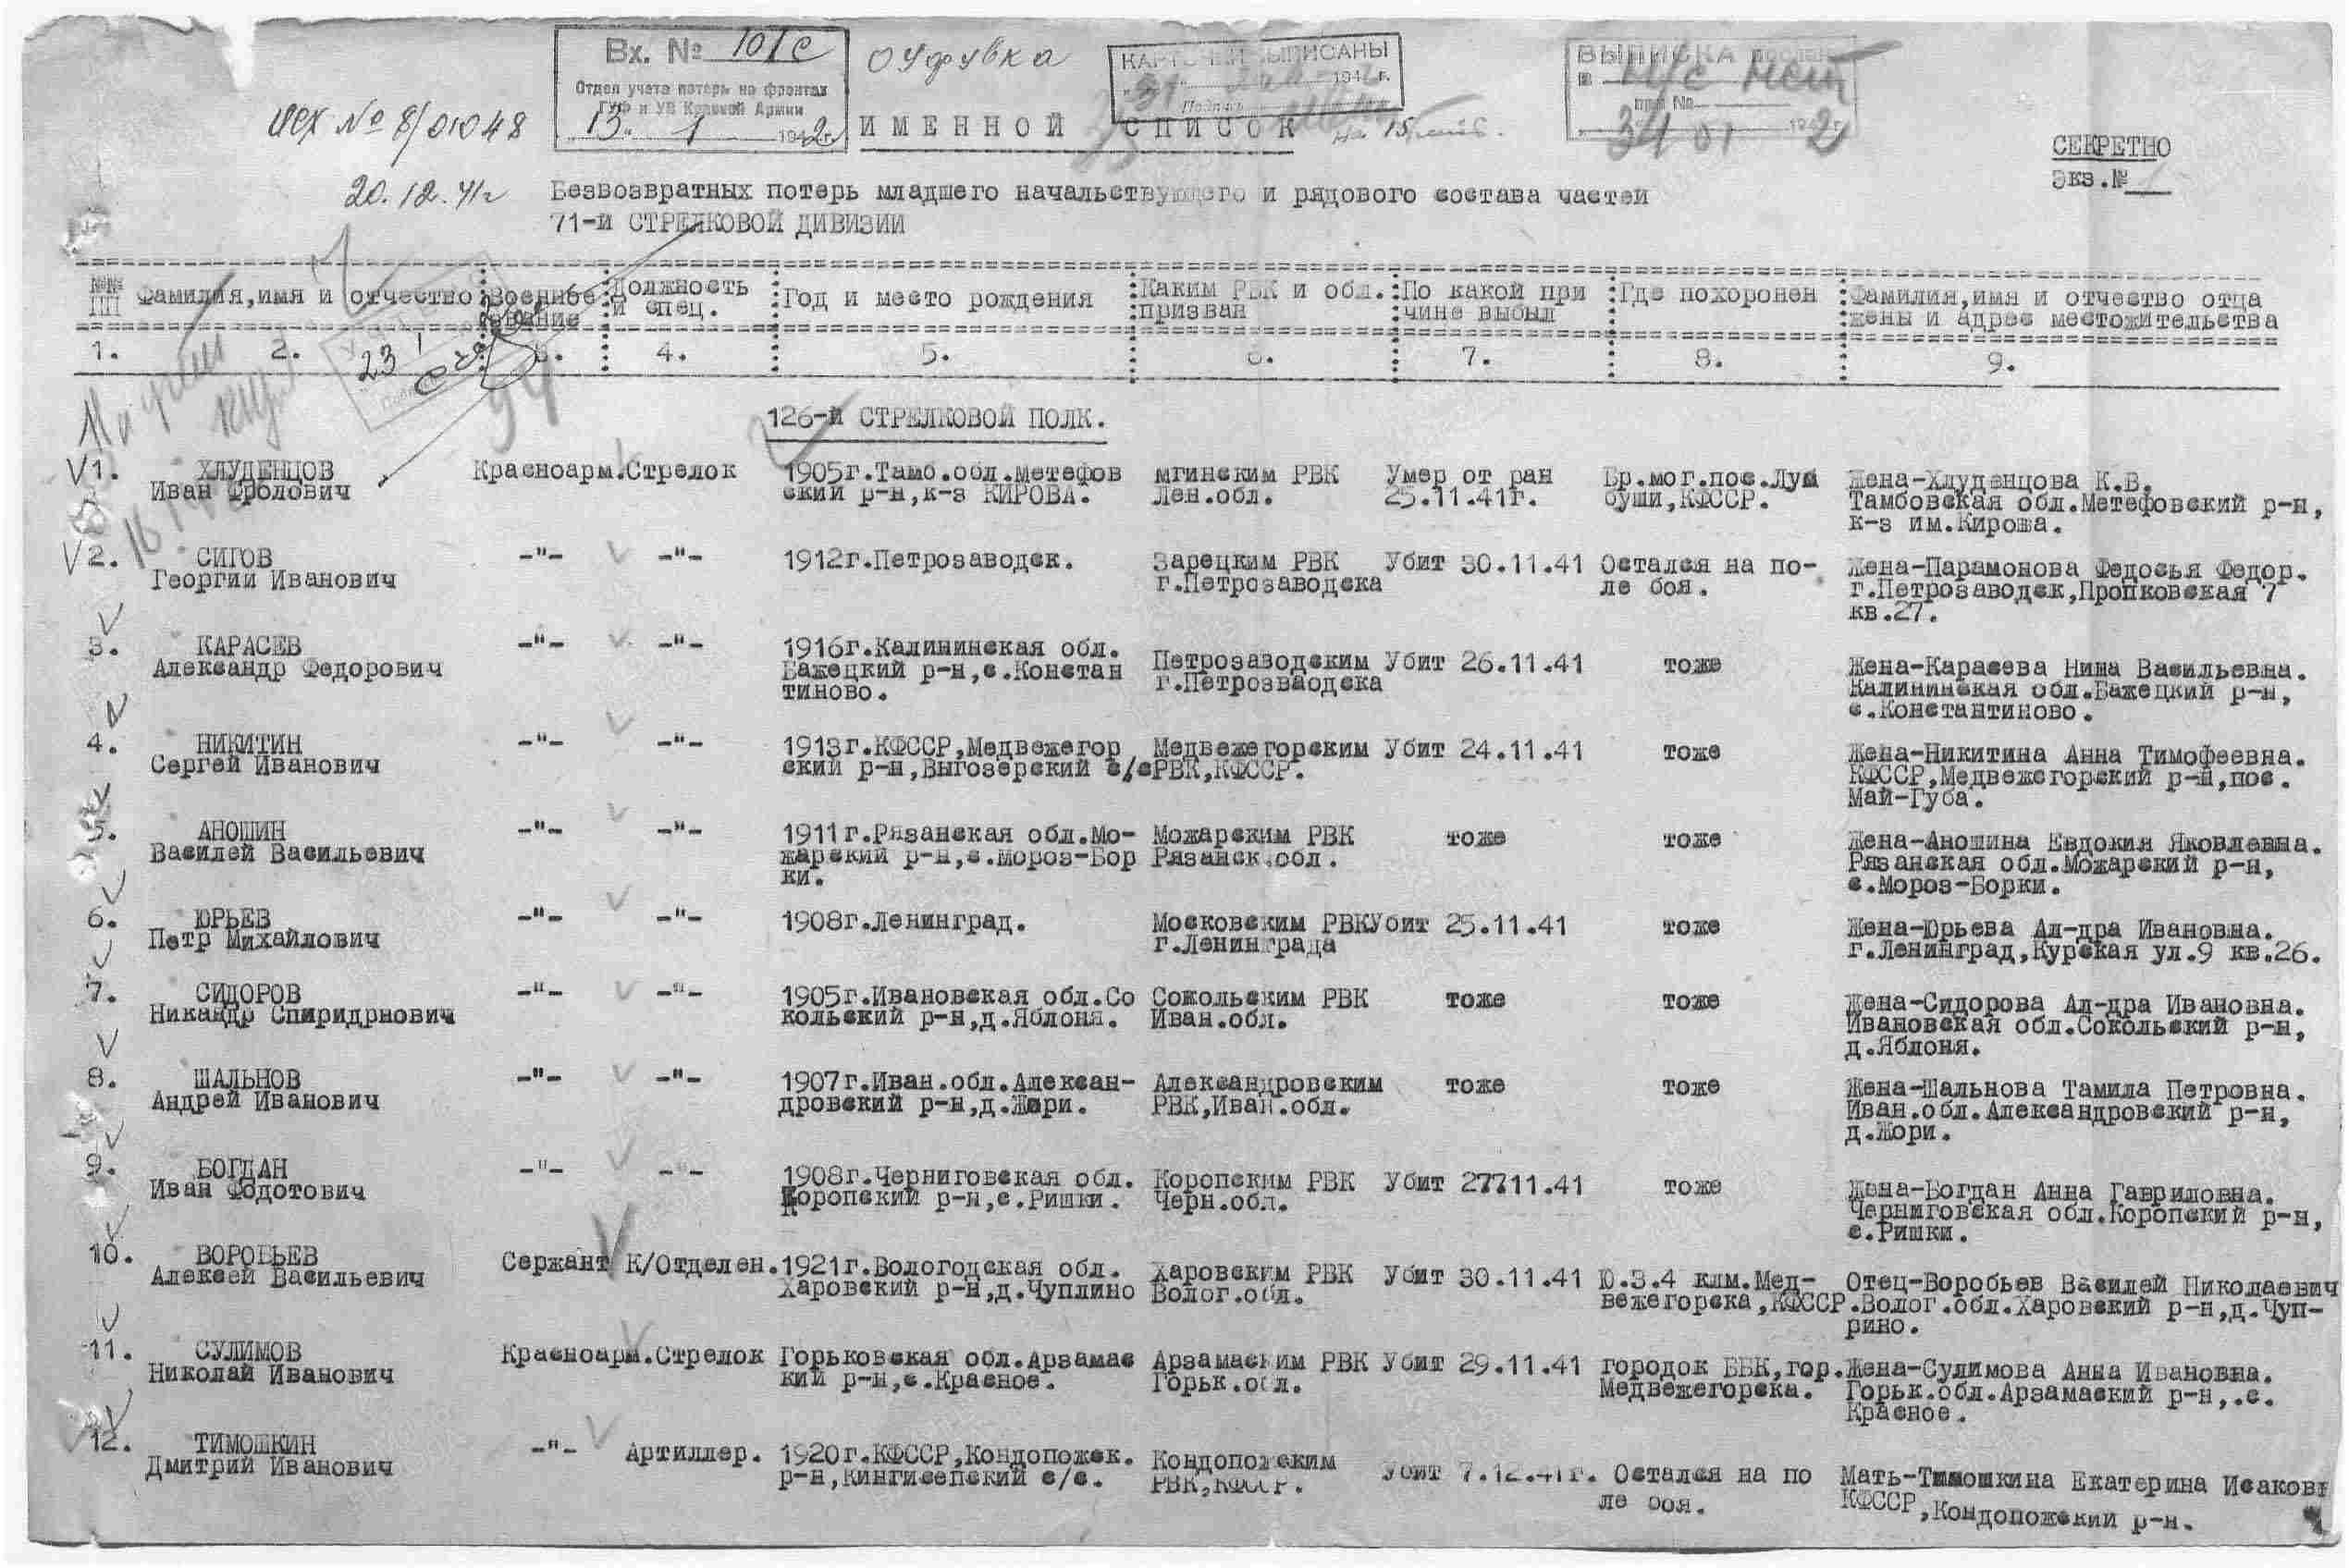 Вх. № 101с
Отдел учета потерь на фронтах
ГУФ и УВ Красной Армии
13. 1 1942г.
КАРТОЧКИ ВЫПИСАНЫ
31
194 г.
Подпись
ВЫПИСКА послана
н/с нет
при №
31 01 1942г.
исх № 8/01048
20.12.41г
ИМЕННОЙ СПИСОК
на 15
СЕКРЕТНО
Экз.№
Безвозвратных потерь младшего начальствующего и рядового состава частей
71-й СТРЕЛКОВОЙ ДИВИЗИИ
№№ ПП Фамилия,имя и отчество Военное звание Должность и спец. Год и место рождения Каким РВК и обл. призван По какой при чине выбыл Где похоронен Фамилия,имя и отчество отца жены и адрес местожительства
1. 2. 3. 4. 5. 6. 7. 8. 9.
23 I
94
126-й СТРЕЛКОВОЙ ПОЛК.
1. ХЛУДЕНЦОВ Красноарм. Стрелок 1905г.Тамб.обл.Метефов мгинским РВК Умер от ран Бр.мог.пос.Лум Жена-Хлуденцова К.В.
Иван Фролович ский р-н,к-з КИРОВА. Лен.обл. 25.11.41г. буши,КФССР. Тамбовская обл.Метефовский р-н,
к-з им.Кирова.
2. СИГОВ -"- -"- 1912г.Петрозаводск. Зарецким РВК Убит 30.11.41 Остался на по- Жена-Парамонова Федосья Федор.
Георгии Иванович г.Петрозаводска ле боя. г.Петрозаводск,Пропковская 7
кв.27.
3. КАРАСЕВ -"- -"- 1916г.Калининская обл. Петрозаводским Убит 26.11.41 тоже Жена-Карасева Нина Васильевна.
Александр Федорович Бажецкий р-н,с.Констан г.Петрозваодска Калининская обл.Бажецкий р-н,
тиново. с.Константиново.
4. НИКИТИН -"- -"- 1913г.КФССР,Медвежегор Медвежегорским Убит 24.11.41 тоже Жена-Никитина Анна Тимофеевна.
Сергей Иванович ский р-н,Выгозерский с/с РВК,КФССР. КФССР,Медвежегорский р-н,пос.
Май-Губа.
5. АНОШИН -"- -"- 1911г.Рязанская обл.Мо- Можарским РВК тоже тоже Жена-Аношина Евдокия Яковлевна.
Василей Васильевич жарский р-н,с.Мороз-Бор Рязанск.обл. Рязанская обл.Можарский р-н,
ки. с.Мороз-Борки.
6. ЮРЬЕВ -"- -"- 1908г.Ленинград. Московским РВК Убит 25.11.41 тоже Жена-Юрьева Ал-дра Ивановна.
Петр Михайлович г.Ленинграда г.Ленинград,Курская ул.9 кв.26.
7. СИДОРОВ -"- -"- 1905г.Ивановская обл.Со Сокольским РВК тоже тоже Жена-Сидорова Ал-дра Ивановна.
Никандр Спиридрнович кольский р-н,д.Яблоня. Иван.обл. Ивановская обл.Сокольский р-н,
д.Яблоня.
8. ШАЛЬНОВ -"- -"- 1907г.Иван.обл.Алексан- Александровским тоже тоже Жена-Шальнова Тамила Петровна.
Андрей Иванович дровский р-н,д.Жори. РВК,Иван.обл. Иван.обл.Александровский р-н,
д.Жори.
9. БОГДАН -"- -"- 1908г.Черниговская обл. Коропским РВК Убит 27711.41 тоже Жена-Богдан Анна Гавриловна.
Иван Фодотович Коропский р-н,с.Ришки. Черн.обл. Черниговская обл.Коропский р-н,
с.Ришки.
10. ВОРОБЬЕВ Сержант К/Отделен. 1921г.Вологодская обл. Харовским РВК Убит 30.11.41 Ю.З.4 клм.Мед- Отец-Воробьев Василей Николаевич
Алексей Васильевич Харовский р-н,д.Чуплино Волог.обл. вежегорска,КФССР. Волог.обл.Харовский р-н,д.Чуп-
рино.
11. СУЛИМОВ Красноарм. Стрелок Горьковская обл.Арзамас Арзамаским РВК Убит 29.11.41 городок ББК,гор. Жена-Сулимова Анна Ивановна.
Николай Иванович кий р-н,с.Красное. Горьк.обл. Медвежегорска. Горьк.обл.Арзамаский р-н,.с.
Красное.
12. ТИМОШКИН -"- Артиллер. 1920г.КФССР,Кондопожск. Кондопожским Убит 7.12.41г. Остался на по Мать-Тимошкина Екатерина Исаковн
Дмитрий Иванович р-н,Кингисепский с/с. РВК,КФССР. ле боя. КФССР,Кондопожский р-н.